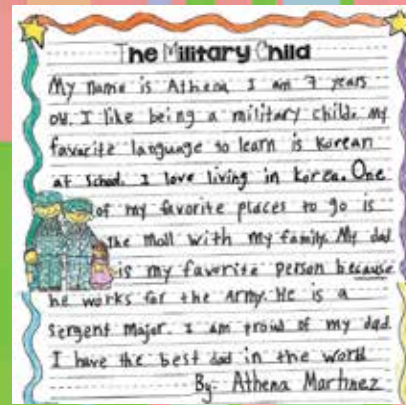 The Military Child
My name is Athena I am 7 years
old. I like being a military child. my
favorite language to learn is Korean
at School. I love living in korea. One
of my favorite places to go is
the mall with my family. My dad
is my favorite person because
he works for the Army. He is a
Sergent Major. I am proud of my dad.
I have the best dad in the world
By: Athena Martinez